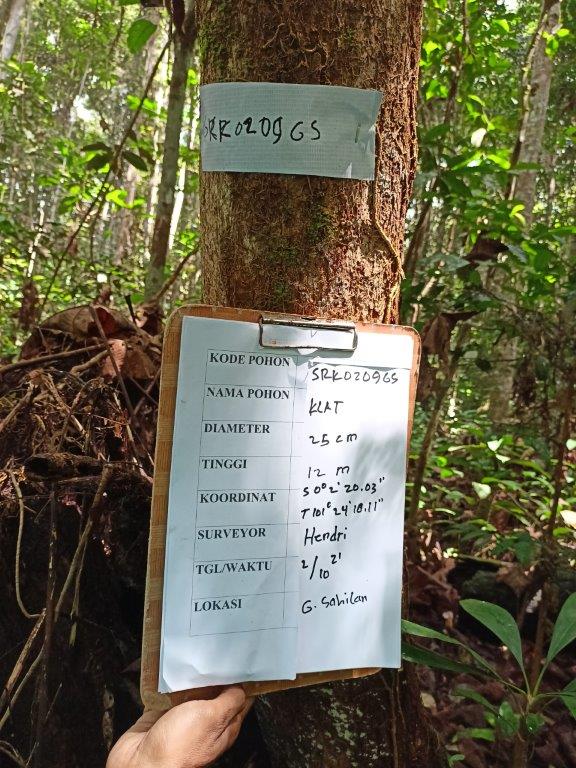 SRK0209GS
KODE POHON SRK0209GS
NAMA POHON KLAT
DIAMETER 25 cm
TINGGI 12 m
KOORDINAT S 0° 2' 20.03"
T 101° 24' 18.11"
SURVEYOR Hendri
TGL/WAKTU 2/10 21
LOKASI G. Sahilan